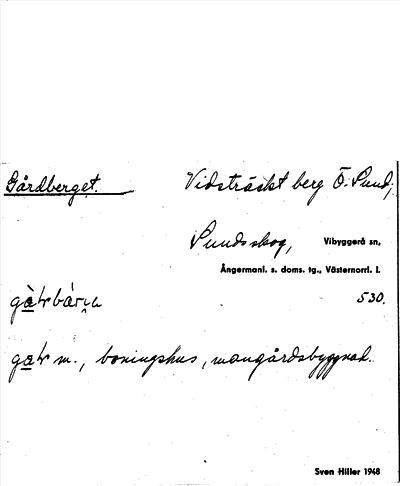 Gårdberget. Vidsträckt berg Ö. Sund,
Sundsskog, Vibyggerå sn,
Ångermanl. s. doms. tg., Västernorrl. l.
530.
m., boningshus, mangårdsbyggnad.
Sven Hiller 1948